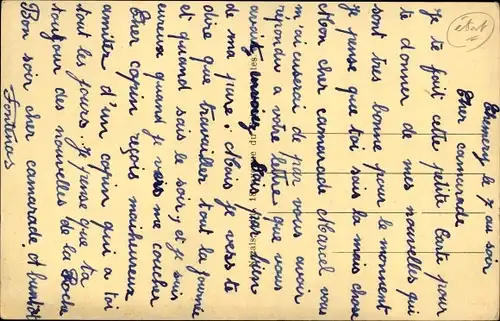 Ennery le 7 au soir
Cher camarade
Je te fait cette petite Carte pour
te donner de mes nouvelles qui
sont tres bonne pour le moment
je pense que toi sais la mais chose
Mon cher camarade Marcel vous
m'aicuserai de par vous avoir
repondu a votre lettre que vous
aviez envoiez
de ma part: Mais je vers te
dire que travailler tout la journée
et quand sais le soir, et je suis
eureux quand je vers me coucher
Cher copin reçois maiheureux
amitiez d'un copin qui a toi
tout les jours. Je pense que tu
toujour des nouvelles de la Roche
Bon soir cher camarade, et bientot